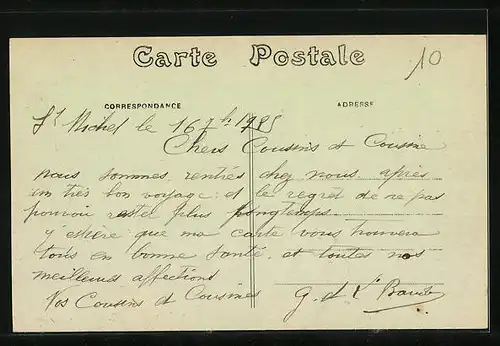 Carte Postale
10
CORRESPONDANCE
ADRESSE
St Michel le 16 7bre
Chers Cousins et Cousine
nous sommes rentrés chez nous après
un très bon voyage et le regret de ne pas
pouvoir resté plus longtemps
j'espère que ma carte vous trouvera
tous en bonne santé et toutes nos
meilleures affections
Vos Cousins et Cousines
G. et